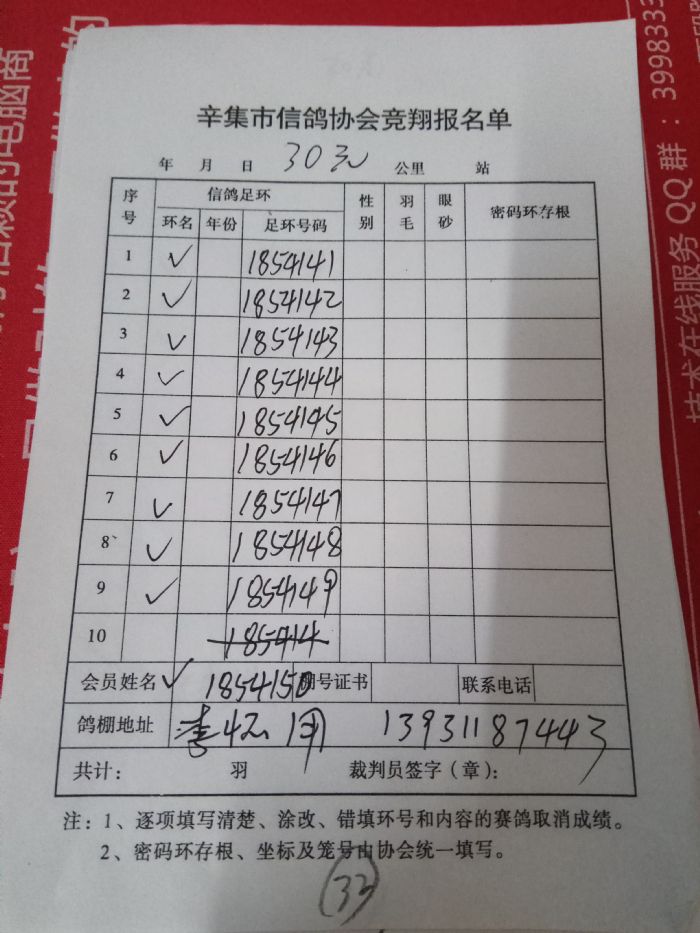 辛集市信鸽协会竞翔报名单
年 月 日 30元 公里 站
序号 信鸽足环 性别 羽毛 眼砂 密码环存根
环名 年份 足环号码
1 ✓ 1854141
2 ✓ 1854142
3 ✓ 1854143
4 ✓ 1854144
5 ✓ 1854145
6 ✓ 1854146
7 ✓ 1854147
8 ✓ 1854148
9 ✓ 1854149
10 185414
会员姓名 ✓ 1854150 棚号证书 联系电话
鸽棚地址 李 13931187443
共计： 羽 裁判员签字（章）：
注：1、逐项填写清楚、涂改、错填环号和内容的赛鸽取消成绩。
2、密码环存根、坐标及笼号由协会统一填写。
33
的电脑商
技术在线服务 QQ群：3998333